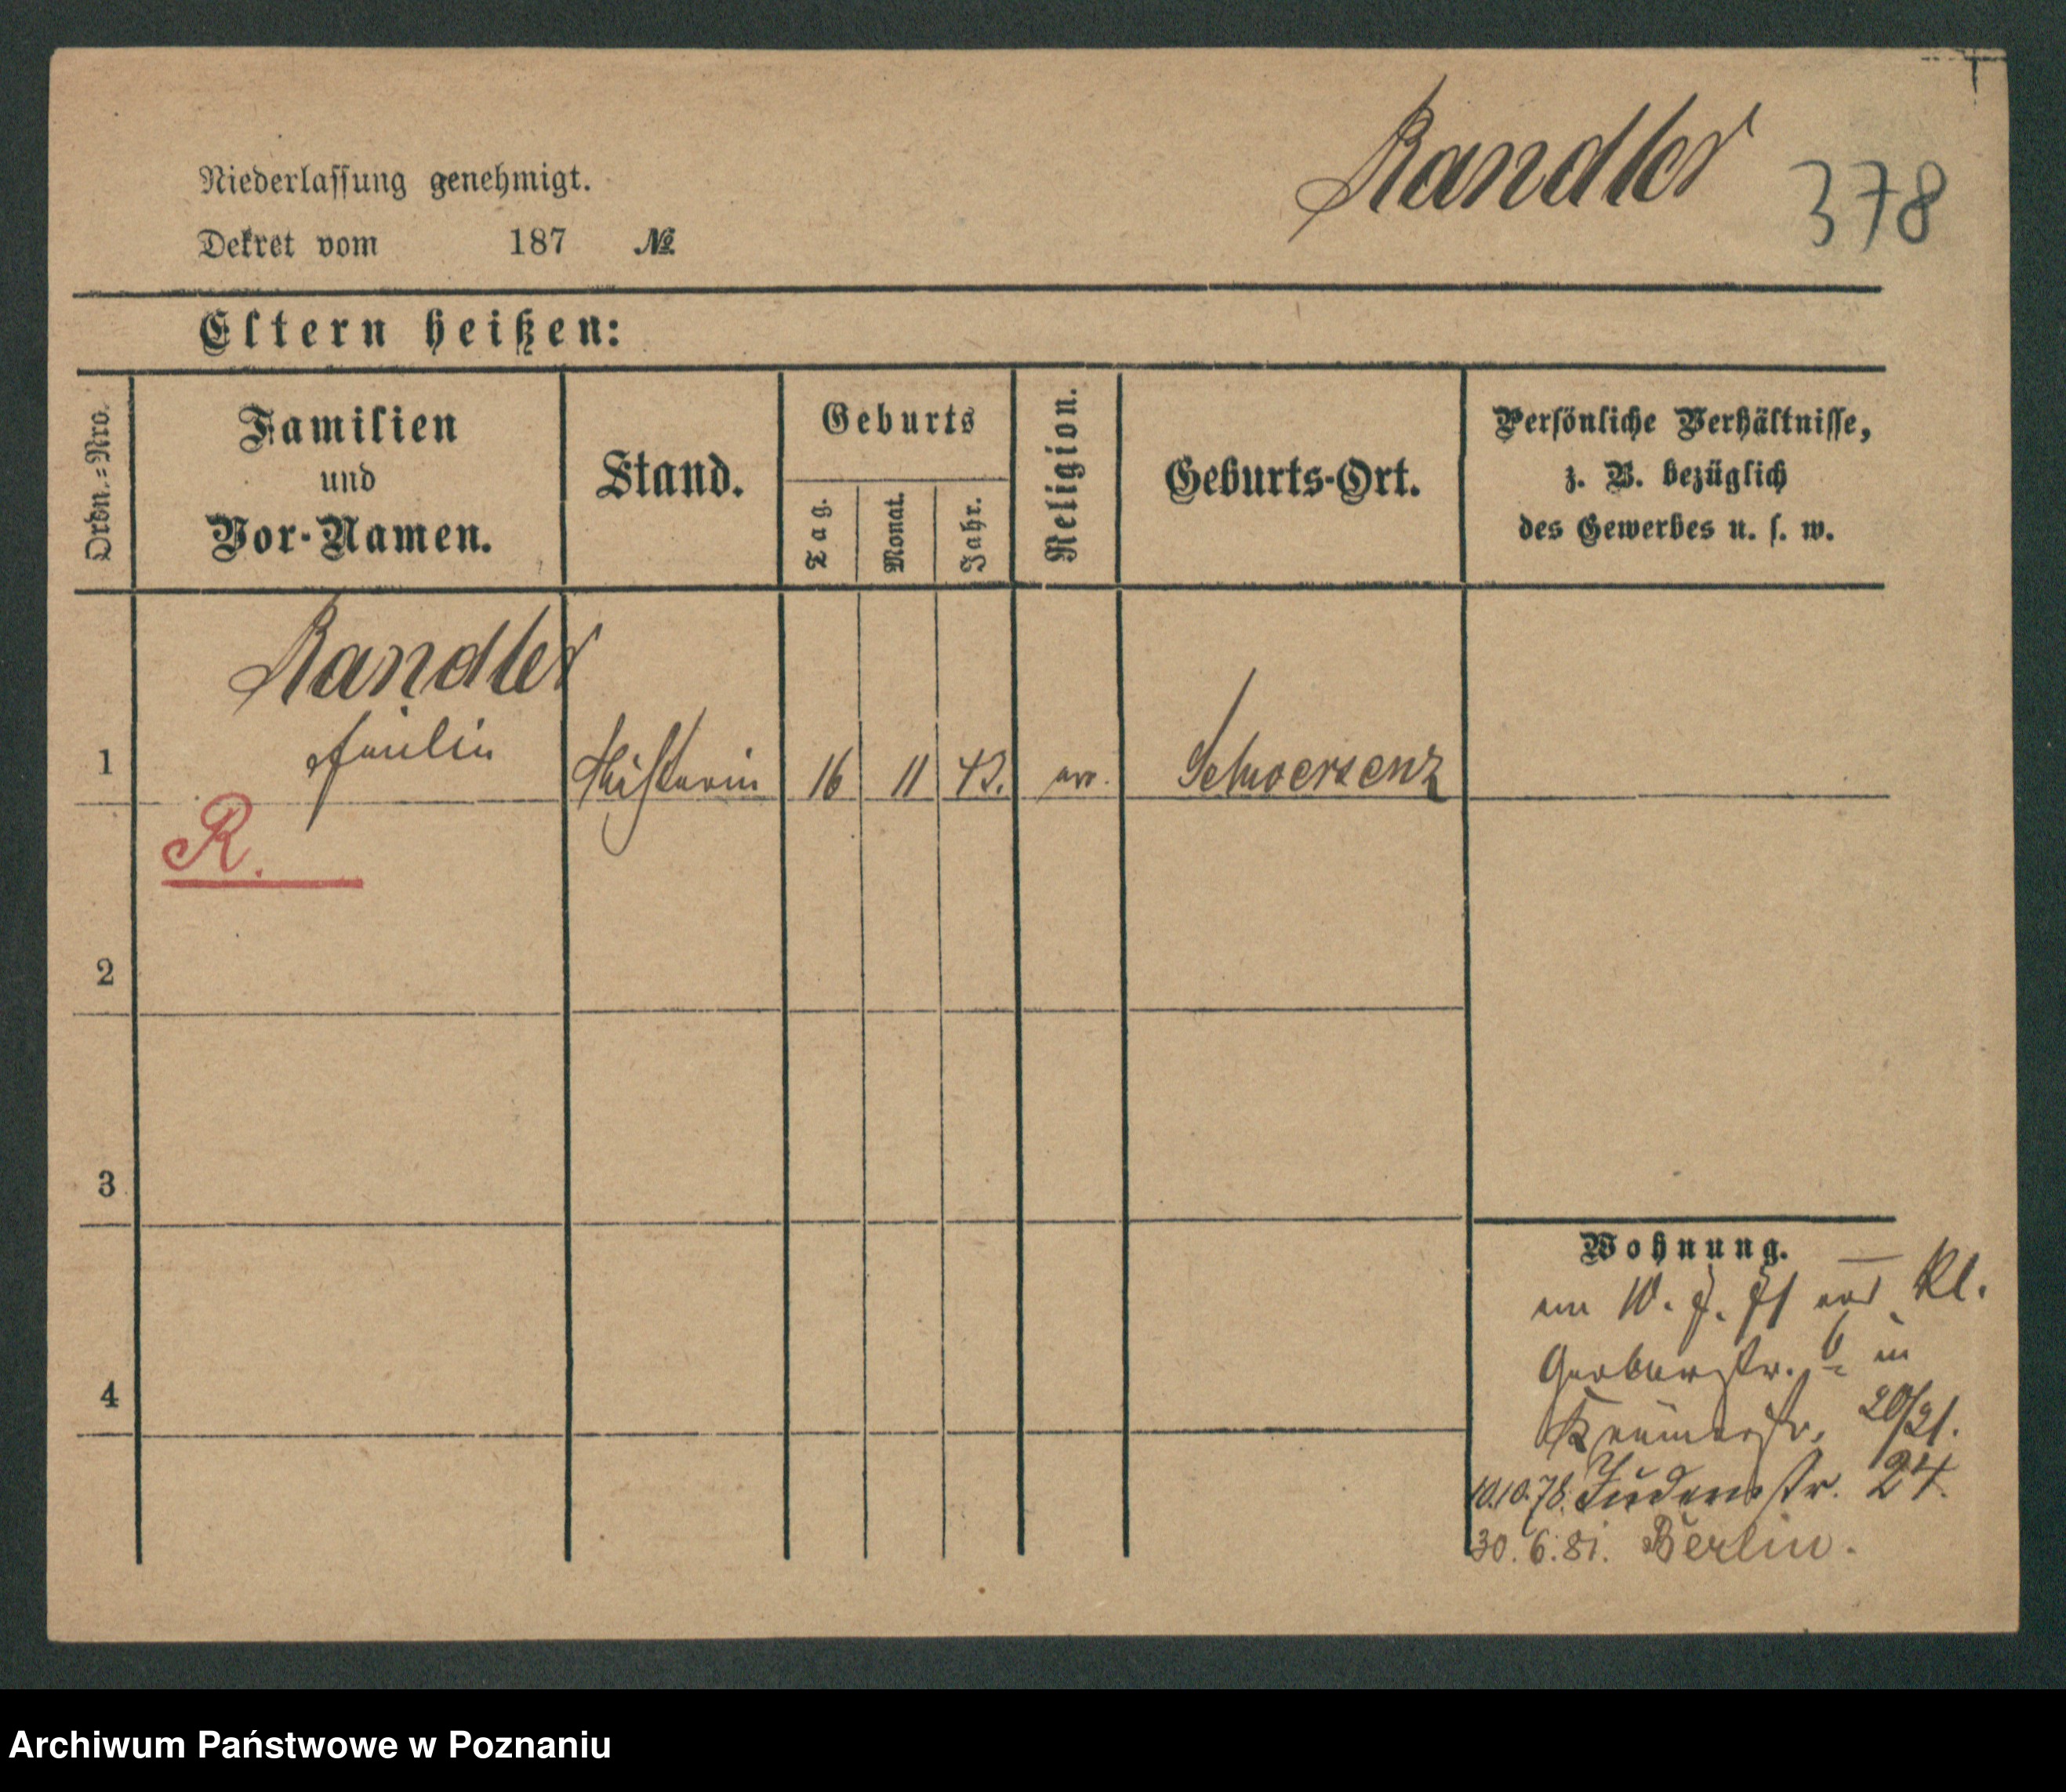 Randler
378
Niederlassung genehmigt.
Dekret vom 187 №
Eltern heißen:
Ordn.=Nro.
Familien
und
Vor-Namen.
Stand.
Geburts
Tag.
Monat.
Jahr.
Religion.
Geburts-Ort.
Persönliche Verhältnisse,
z. B. bezüglich
des Gewerbes u. s. w.
Randler
1 16 11 43. Schwersenz
R.
2
3
4
Wohnung.
Kl.
Gerberstr. 6 in
Krämerstr. 20/21.
10.10.78. Judenstr. 24.
30.6.81. Berlin.
Archiwum Państwowe w Poznaniu